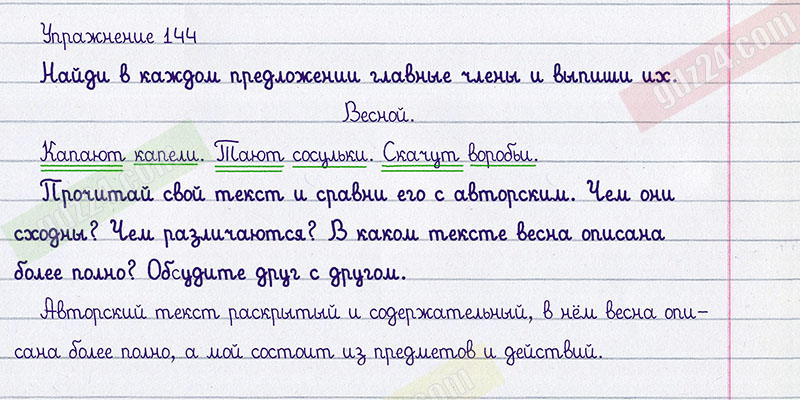 Упражнение 144
Найди в каждом предложении главные члены и выпиши их.
Весной.
Капают капели. Тают сосульки. Скачут воробьи.
Прочитай свой текст и сравни его с авторским. Чем они
сходны? Чем различаются? В каком тексте весна описана
более полно? Обсудите друг с другом.
Авторский текст раскрытый и содержательный, в нём весна опи-
сана более полно, а мой состоит из предметов и действий.
gdz24.com
gdz24.com